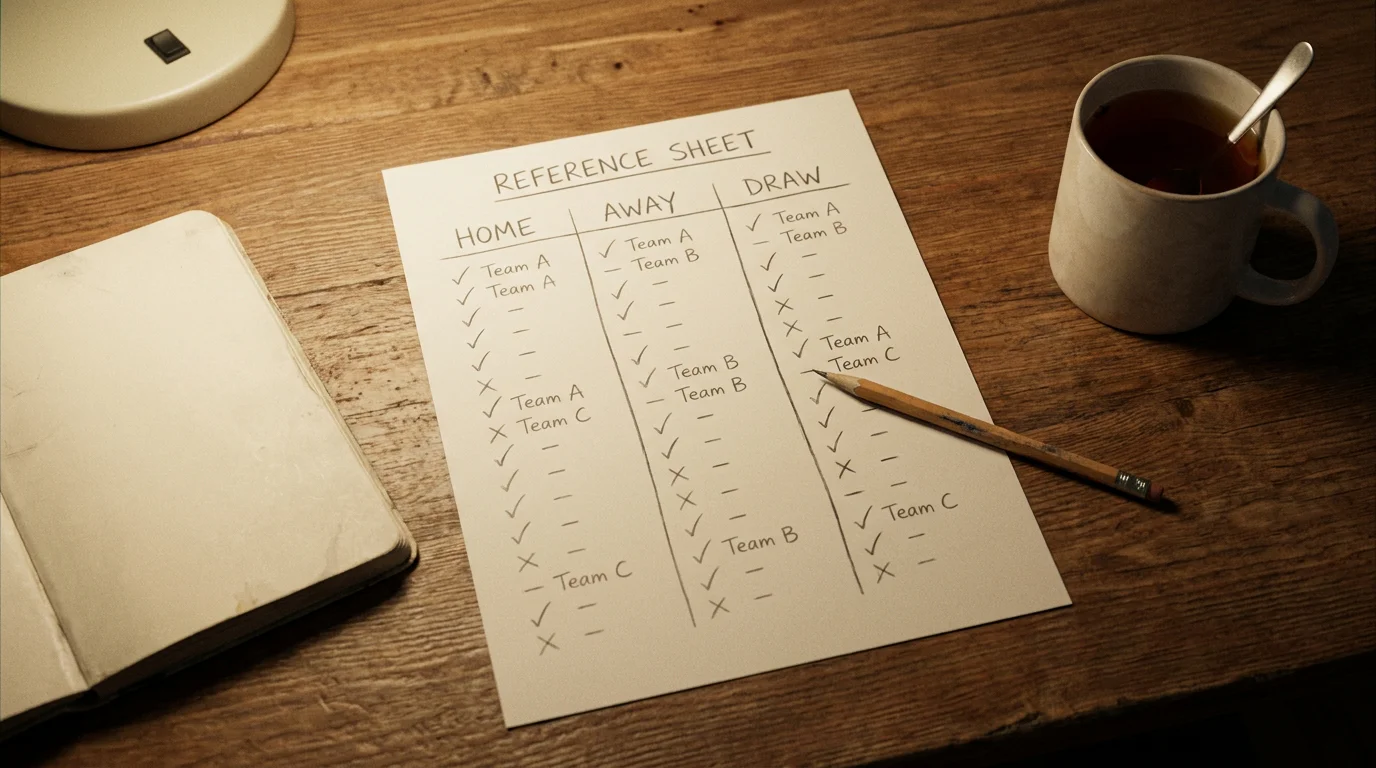 REFERENCE SHEET
HOME
✓ Team A
✓ Team A
✓ –
✓ –
✓ –
× –
✓ Team A
× Team C
✓ –
✓ –
✓ –
✓ –
× –
– Team C
✓ –
× –
AWAY
✓ Team A
– Team B
✓ –
✓ –
– –
✓ –
✓ Team B
– Team B
✓ –
✓ –
× –
× –
✓ –
✓ Team B
✓ –
× –
DRAW
✓ Team A
– Team B
✓ –
✓ –
× –
× –
✓ Team A
– Team C
✓
✓ –
✓ –
× –
– –
✓ Team C
✓ –
× –